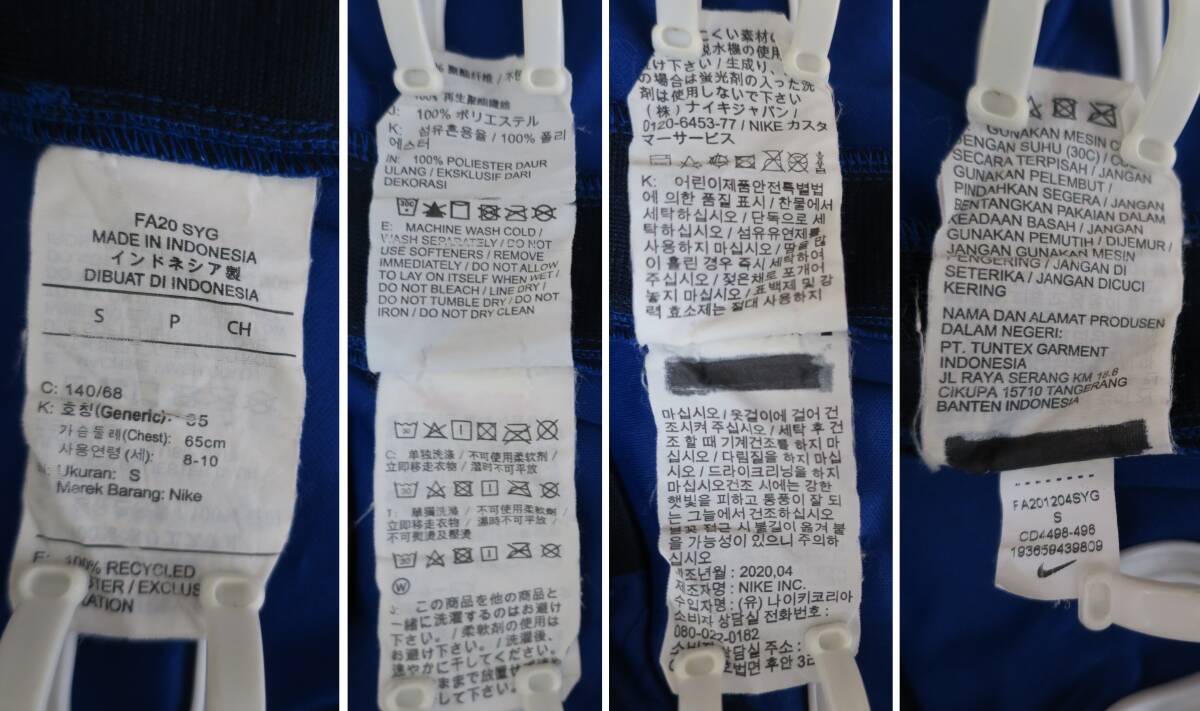 FA20 SYG
MADE IN INDONESIA
インドネシア製
DIBUAT DI INDONESIA
S P CH
C: 140/68
K: 호칭(Generic): 85
가슴둘레(Chest): 65cm
사용연령 (세): 8-10
Ukuran: S
Merek Barang: Nike
100% RECYCLED
/ EXCLUS
聚酯纤维 /
100% 再生聚酯纖維
J: 100% ポリエステル
K: 섬유혼용율 / 100% 폴리
에스터
IN: 100% POLIESTER DAUR
ULANG / EKSKLUSIF DARI
DEKORASI
E: MACHINE WASH COLD /
WASH SEPARATELY / DO NOT
USE SOFTENERS / REMOVE
IMMEDIATELY / DO NOT ALLOW
TO LAY ON ITSELF WHEN WET /
DO NOT BLEACH / LINE DRY /
DO NOT TUMBLE DRY / DO NOT
IRON / DO NOT DRY CLEAN
C: 单独洗涤 / 不可使用柔软剂 /
立即移走衣物 / 湿时不可平放
T: 單獨洗滌 / 不可使用柔軟劑 /
立即移走衣物 / 濕時不可平放 /
不可熨燙及壓燙
W
J: この商品を他の商品と
一緒に洗濯するのはお避け
下さい。/ 柔軟剤の使用は
お避け下さい。/ 洗濯後、
速やかに干してください。
ままで放置
して下さい。
にくい素材
脱水機の使用
け下さい / 生成り、
の場合は蛍光剤の入った洗
剤は使用しないで下さい
(株) ナイキジャパン /
0120-6453-77 / NIKE カスタ
マーサービス
K: 어린이제품안전특별법
에 의한 품질 표시 / 찬물에서
세탁하십시오 / 단독으로 세
탁하십시오 / 섬유유연제를
사용하지 마십시오 / 땀을 많
이 흘린 경우 즉시 세탁하여
주십시오 / 젖은채로 포개어
놓지 마십시오 / 표백제 및 강
력 효소제는 절대 사용하지
마십시오 / 옷걸이에 걸어 건
조시켜 주십시오 / 세탁 후 건
조 할 때 기계건조를 하지 마
십시오 / 다림질을 하지 마십
시오 / 드라이크리닝을 하지
마십시오건조 시에는 강한
햇빛을 피하고 통풍이 잘 되
는 그늘에서 건조하십시오
불꽃 접근 시 불길이 옮겨 붙
을 가능성이 있으니 주의하
십시오
제조년월 : 2020,04
제조자명 : NIKE INC.
수입자명 : (유) 나이키코리아
소비자 상담실 전화번호 :
080-022-0182
소비자 상담실 주소 :
GUNAKAN MESIN
DENGAN SUHU (30C) /
SECARA TERPISAH / JANGAN
GUNAKAN PELEMBUT /
PINDAHKAN SEGERA / JANGAN
BENTANGKAN PAKAIAN DALAM
KEADAAN BASAH / JANGAN
GUNAKAN PEMUTIH / DIJEMUR /
JANGAN GUNAKAN MESIN
PENGERING / JANGAN DI
SETERIKA / JANGAN DICUCI
KERING
NAMA DAN ALAMAT PRODUSEN
DALAM NEGERI:
PT. TUNTEX GARMENT
INDONESIA
JL RAYA SERANG KM 18.6
CIKUPA 15710 TANGERANG
BANTEN INDONESIA
FA201204SYG
S
CD4498-496
193659439809